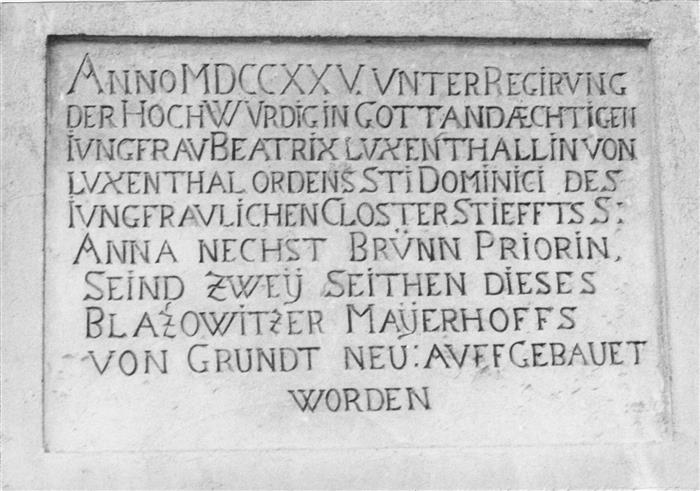 ANNO MDCCXXV. VNTER REGIRVNG
DER HOCHWVRDIG IN GOTT ANDÆCHTIGEN
IVNGFRAV BEATRIX LVXENTHALLIN VON
LVXENTHAL ORDENS STI DOMINICI DES
IVNGFRAVLICHEN CLOSTER STIEFFTS S:
ANNA NECHST BRÜNN PRIORIN,
SEIND ZWEŸ SEITHEN DIESES
BLAŻOWITŻER MAŸERHOFFS
VON GRUNDT NEU: AVFFGEBAUET
WORDEN